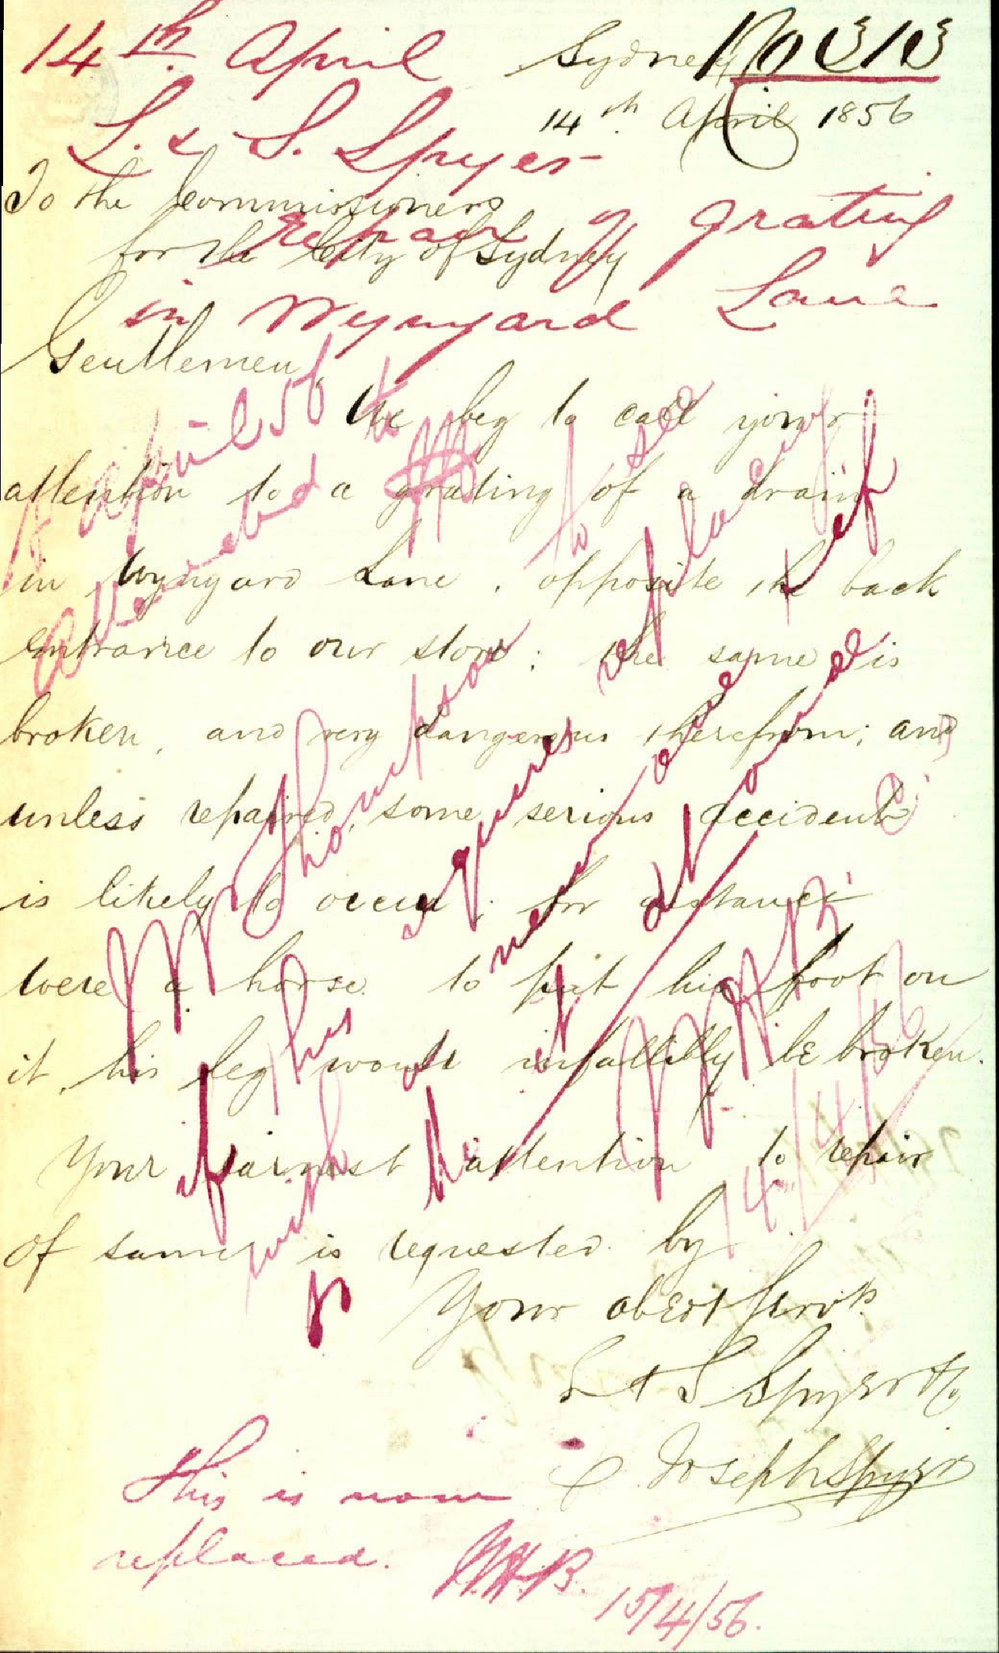 14th April
L. & S. Spyer
repair of grating
in Wynyard Lane
Sydney
14th April 1856
To the Commissioners
for the City of Sydney
Gentlemen
We beg to call your
attention to a grating of a drain
in Wynyard Lane, opposite the back
entrance to our store; the same is
broken, and very dangerous therefrom; and
unless repaired, some serious accident
is likely to occur; for instance
were a horse to put his foot on
it, his leg would infallibly be broken.
Your earnest attention to repair
of same, is requested by
Your obedt Servts
L & S Spyer & Co
Joseph Spyer
Mr Thompson to see
if this requires replacing
with a new one & if
so let it at once
attended to
14/4/56
This is now
replaced. W.H.B.
15/4/56.